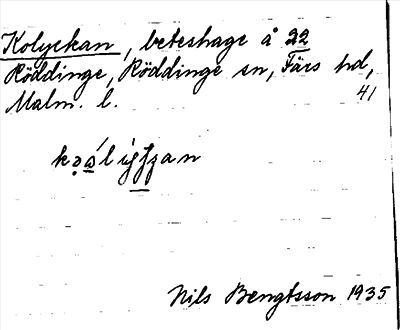 Kolyckan, beteshage å 22
Röddinge, Röddinge sn, Färs hd,
Malm. l. 41
Nils Bengtsson 1935